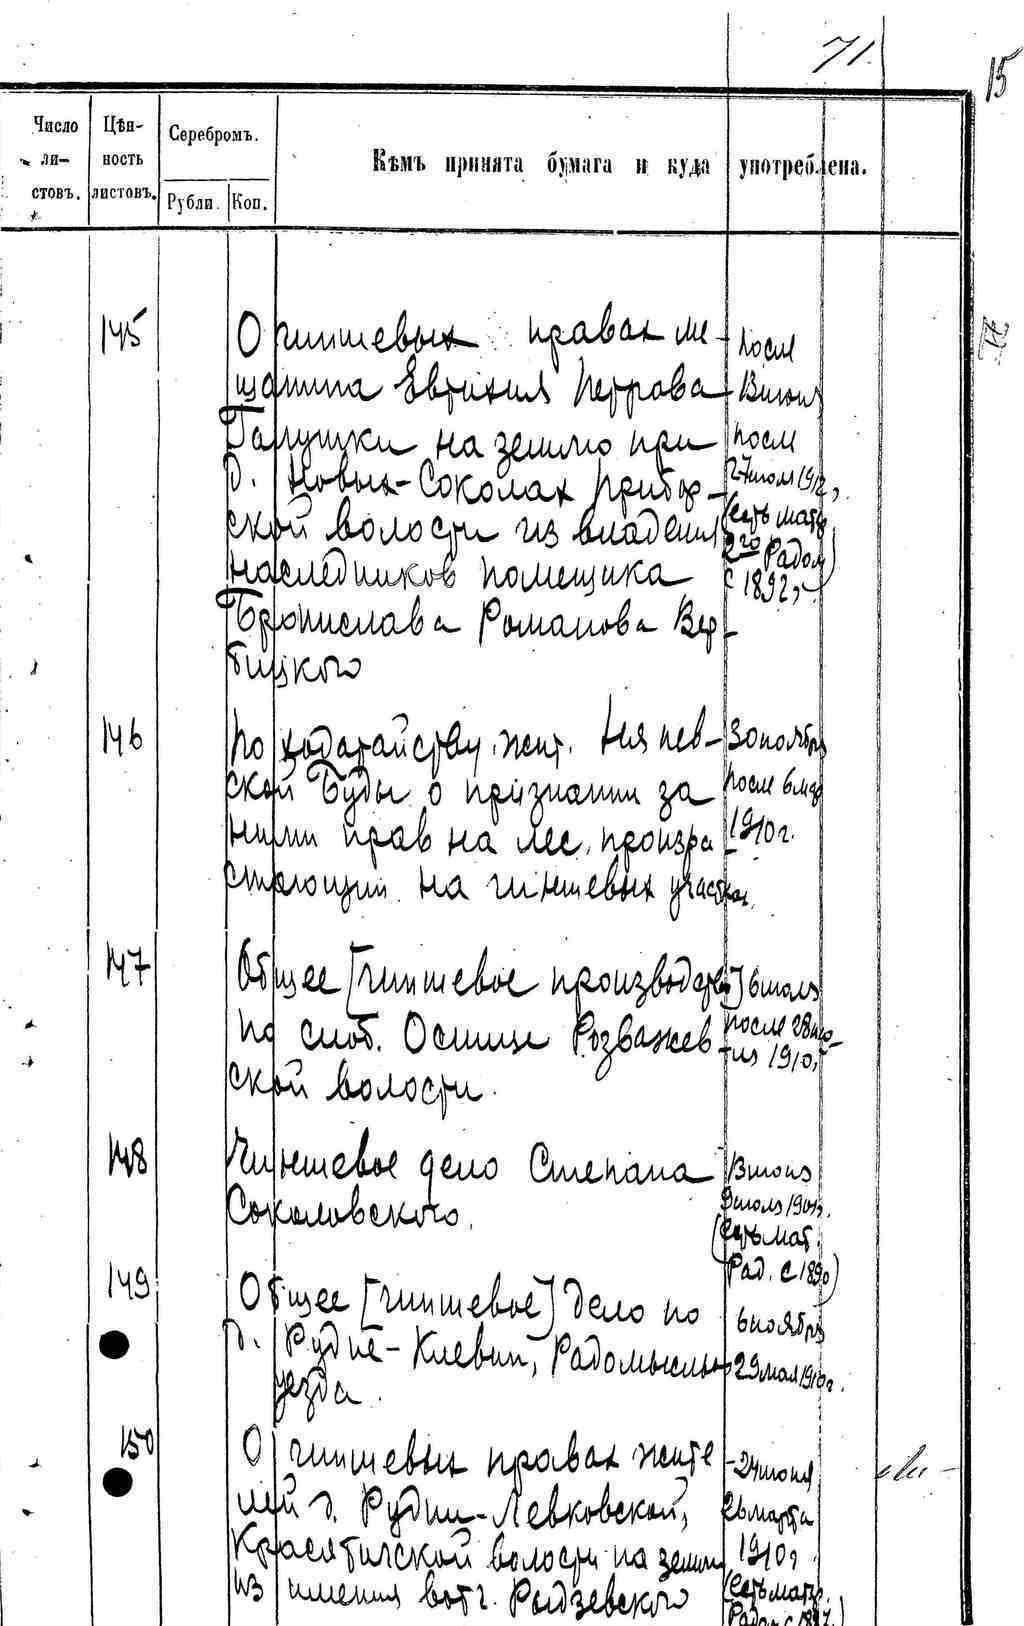 71.
15
Число ли- стовъ.
Цѣн- ность листовъ.
Серебромъ.
Рубли. Коп.
Кѣмъ принята бумага и куда употреблена.
145
О чиншевых правах ме-
щанина Евтихия Петрова
Галушки на землю при
д. Новых-Соколах Прибор-
ской волости из владения
наследников помещика
Бронислава Романова Вер-
бицкого
после
после
27 июля 1912г
(есть матер
2го Радом)
с 1892г
146
По ходатайству жит.
ской Буды о признании за
ними прав на лес, произра
стающий на чиншевых участках.
3 ноября
после 6 мар
1910 г.
147
Общее [чиншевое производство]
по слоб. Осшце Розважев
ской волости.
6 июля
после 28 ию-
ня 1910г
148
Чиншевое дело Степана
Соколовского.
13 июня
9 июля 1901г.
(есть мат.
Рад. с 1890)
149
Общее [чиншевое] дело по
д. Рудне-Клевин, Радомысльн
уезда.
6 ноября
29 мая 1910г.
150
О чиншевых правах жите
лей д. Рудни-Левковской,
Красятичской волости на земли
из имения вотч. Рыдзевского
24 июня
26 марта
1910г
(есть матер.